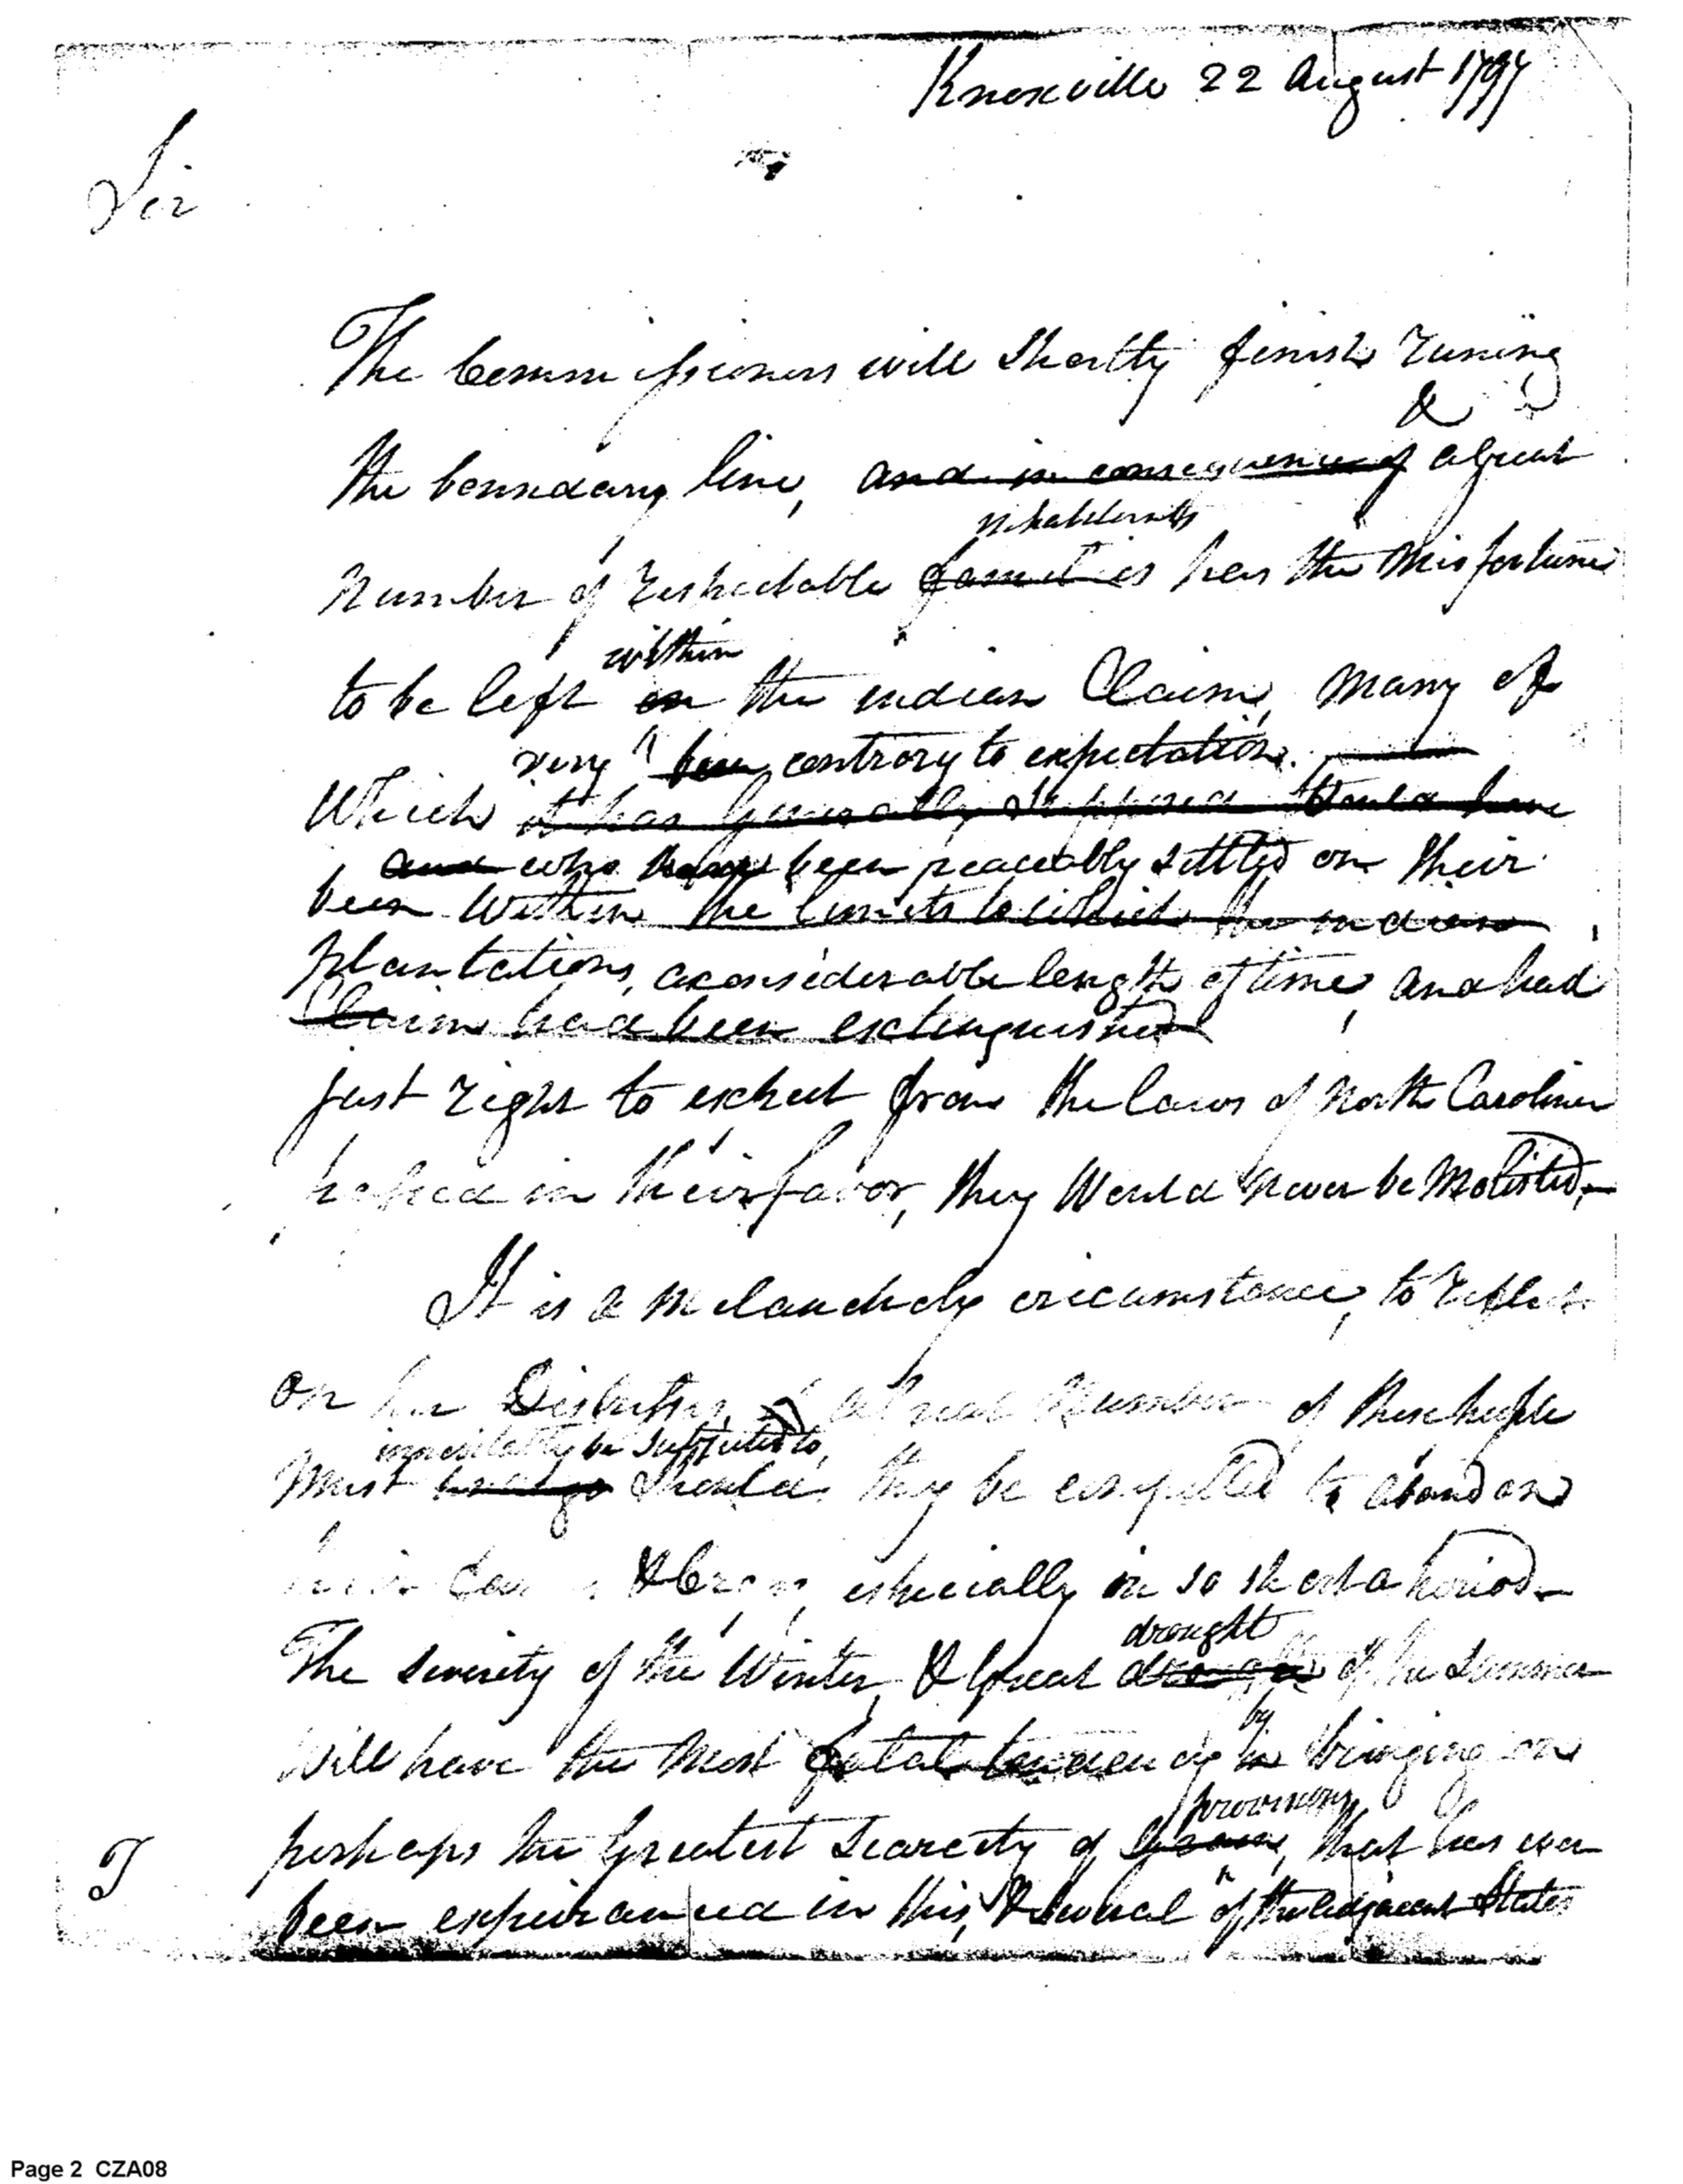 Knoxville 22 August 1797
Sir
The Commissioners will Shortly finish runing
&
the boundary line, and in consequence of a great
inhabitants
Number of respectable families has the Misfortune
within
to be left in the indian Claim, Many of
very been contrary to expectation.
Which it has Generally Supposed Would have
and who have been peaceably settled on their
been Within the limits to which the indian
plantations, a considerable length of time, and had
Claim had been extinguished
just right to expect from the laws of North Carolina
passed in their favor, they Would never be Molisted,
It is a Melancholy cricumstance, to reflect
on the Distresses, a Great Number of these people
innevitably be Subjected to,
Must Should they be compelled to abandon
& Crops, especially in so short a period
drought
The Severity of the Winter, & Great of the Summer
by
Will have the Most fatal tendency in bringing on
provisions
perhaps the Greatest Scarcity of that has ever
been expeiranced in this, & Several of the adjacent States
T
Page 2 CZA08